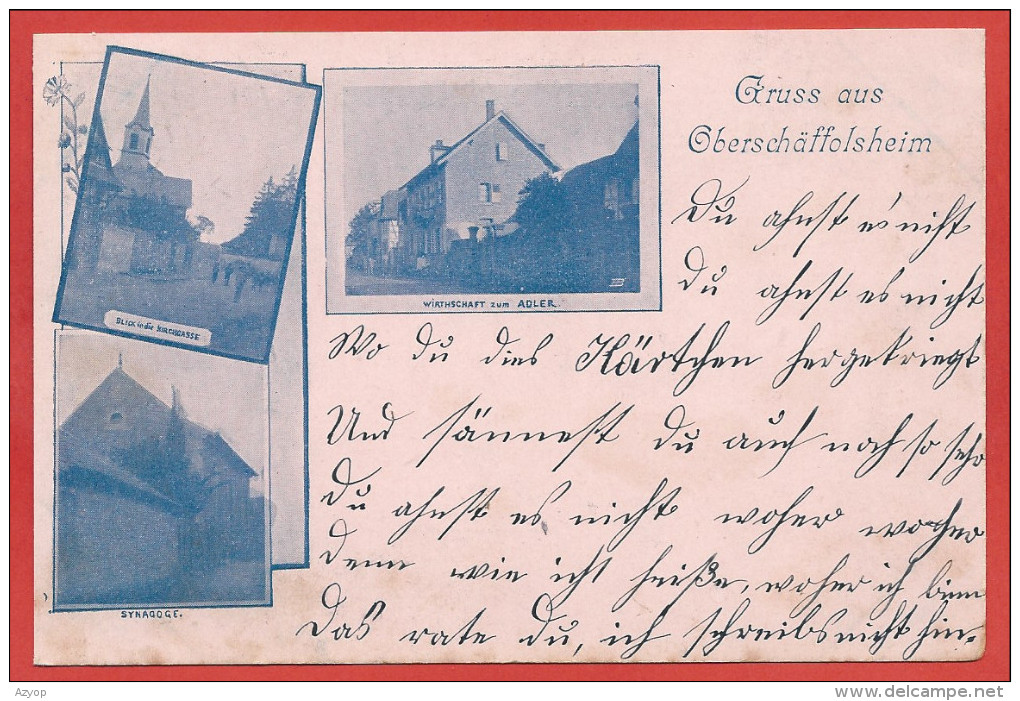 Gruss aus
Oberschäffolsheim
BLICK in die KIRCHGASSE
WIRTHSCHAFT zum ADLER.
SYNAGOGE.
Du ahnst es nicht
Du ahnst es nicht
Wo du dies Kärtchen hergekriegt
Und sännest du auch noch so sehr
Du ahnst es nicht woher woher
Denn wie ich heiße, woher ich bin
Das rate du, ich schreibs nicht hin.
Azyop
www.delcampe.net